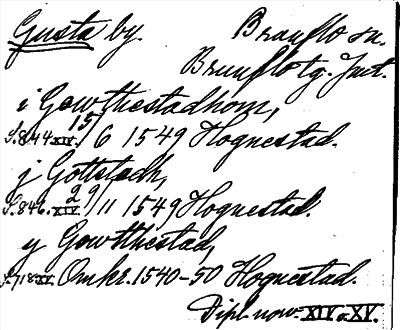 Gusta by. Brunflo sn.
Brunflo tg. Jmt.
i Gowthestadhom,
S. 844. XIV. 15/6 1549 Hognestad.
j Gottstadh,
S. 846. XIV. 29/11 1549 Hognestad.
y Gowthestad,
S. 718 XV. Omkr. 1540-50 Hognestad.
Dipl. now. XIV o. XV.